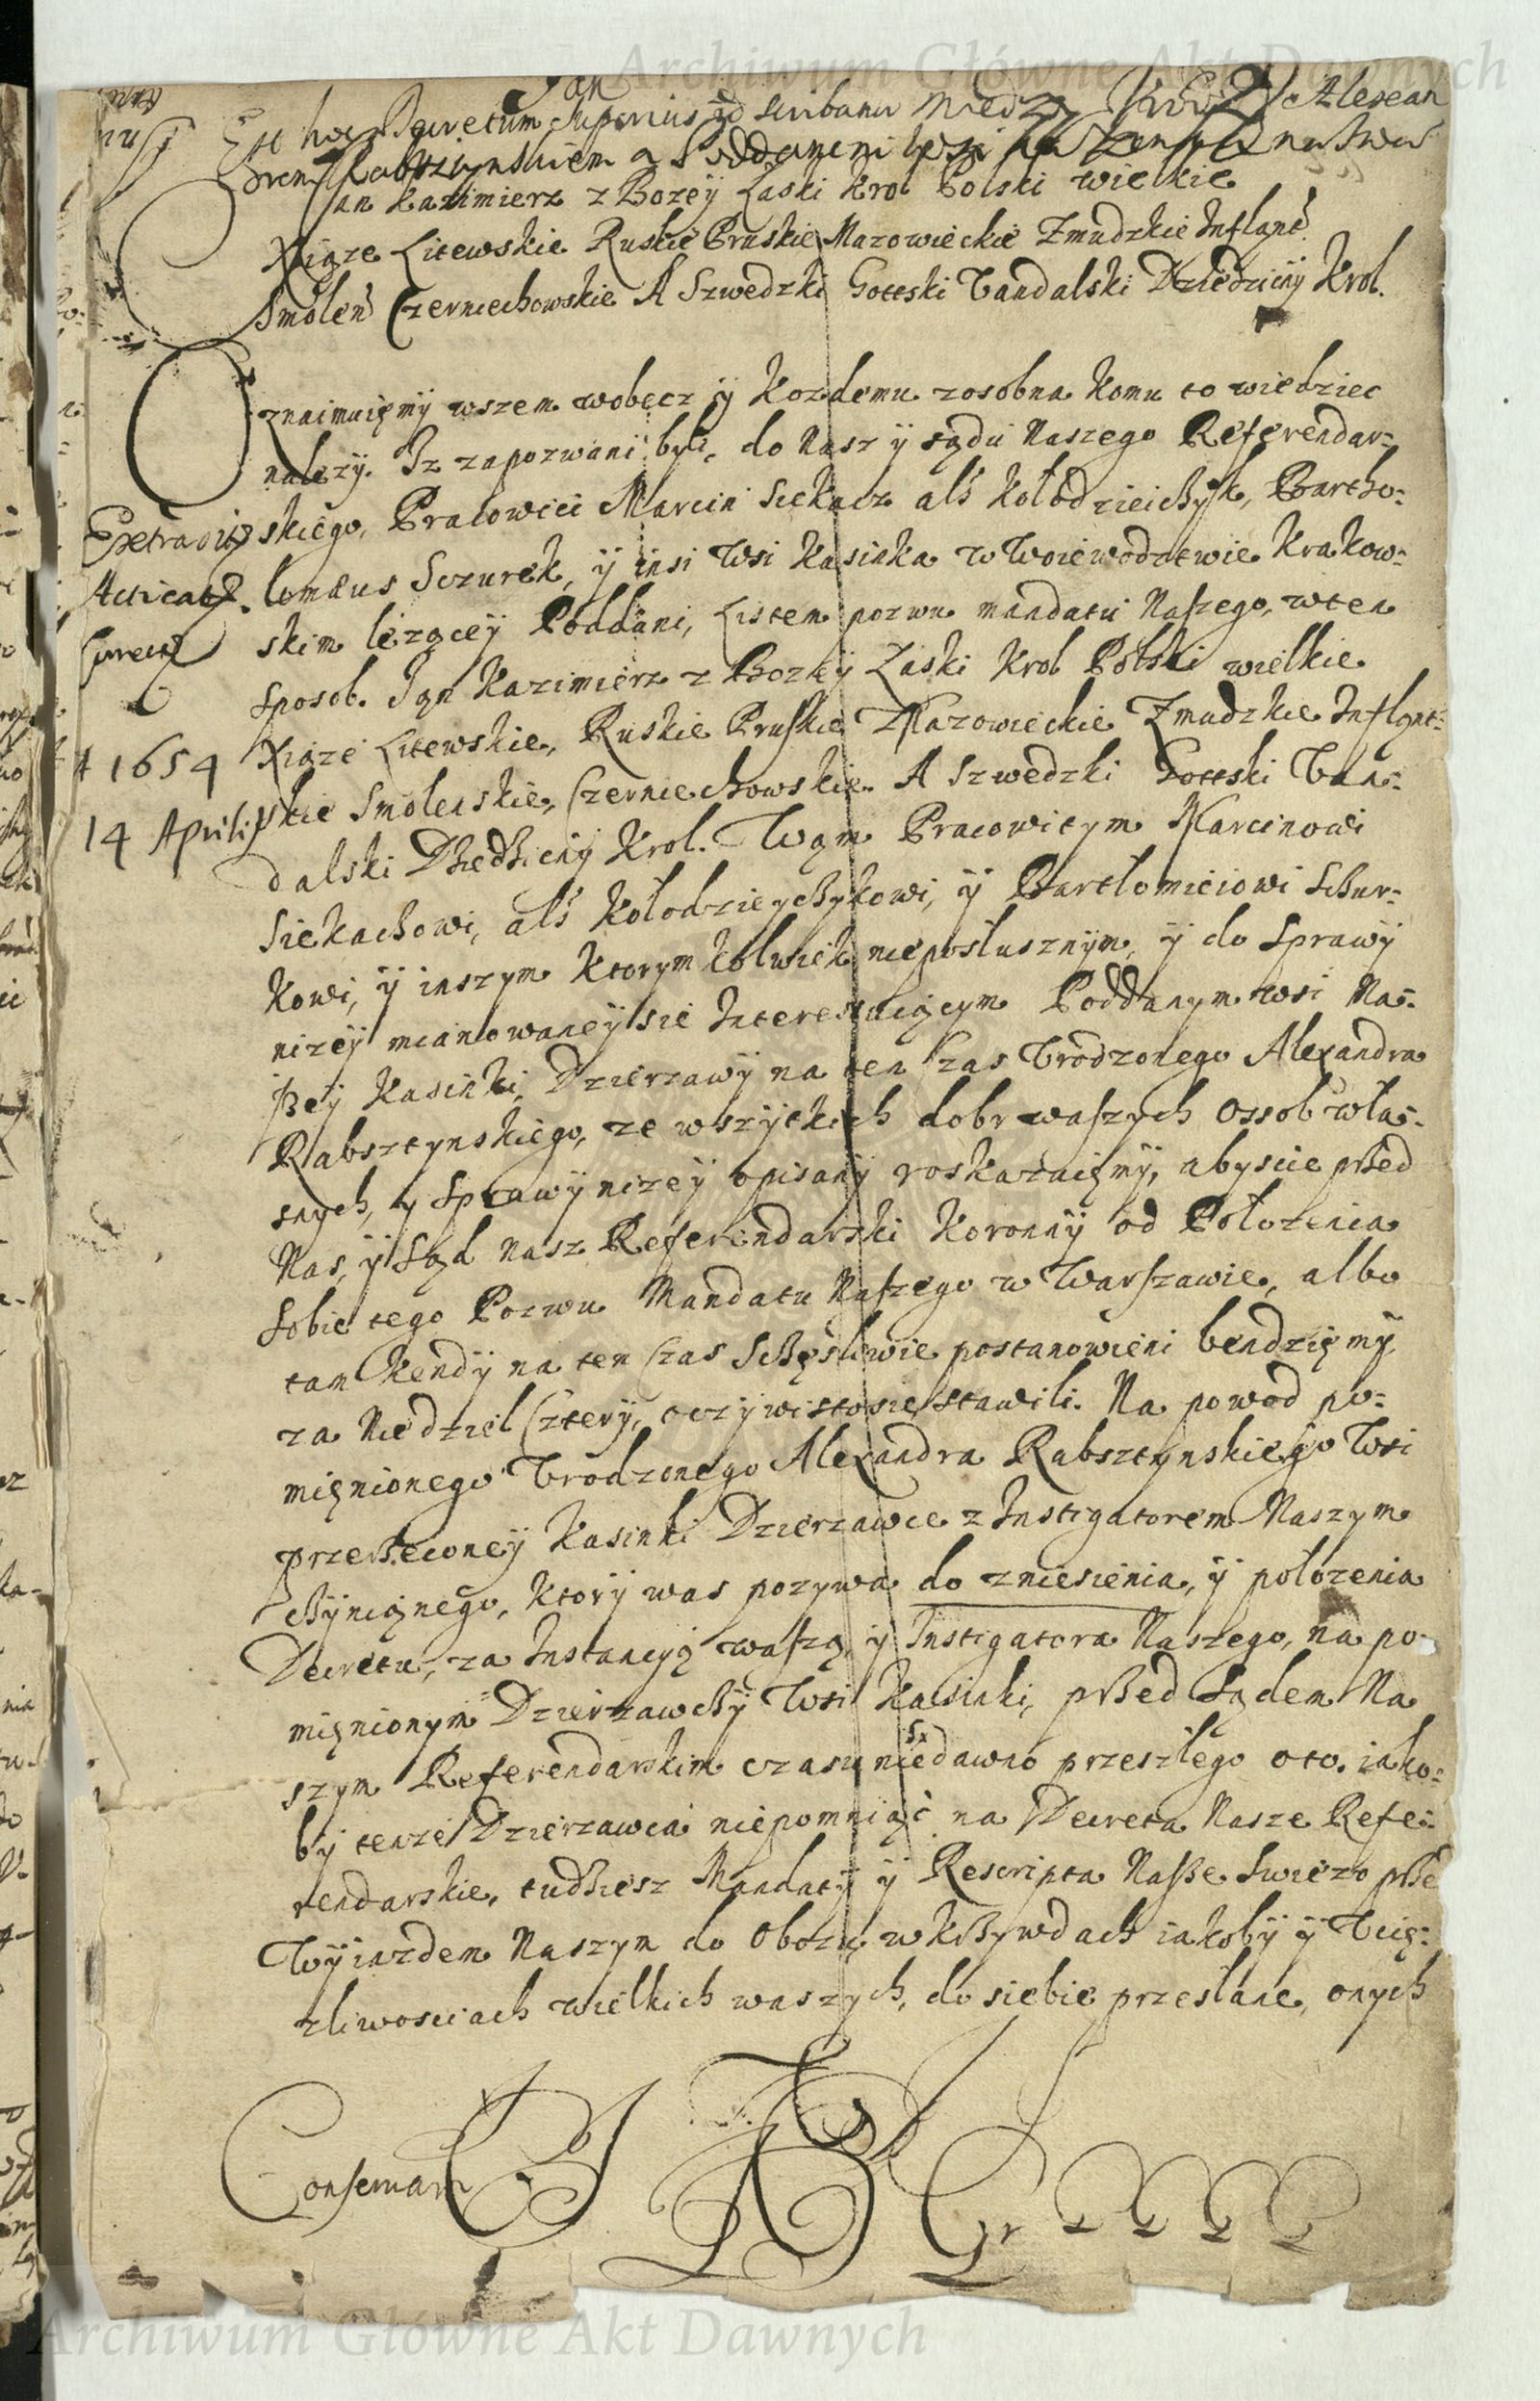 Archiwum Główne Akt Dawnych
Jan
Est hoc Decretum Superius id scribanu Miedzy Alexan
drem Rabsztynskiem a Poddanemi
Jan Kazimierz z Bozey Łaski Krol Polski wielkie
Xiąze Litewskie Ruskie Pruskie Mazowieckie Zmudzkie Inflant
Smolen Czerniechowskie A Szwedzki Gottski Vandalski Dziedziczny Krol.
Oznaimuięmy wszem wobęcz y kozdemu zosobna komu to wiedziec
nalezy. Iz zapozwani byli, do nasz y sądu Naszego Referendar=
skiego, Pracowici Marcin Siekacz als Kołodzieiczyk, Bartho=
lomæus Sczurek, y insi Wsi Kasinka w Woiewodztwie Krakow=
skim lezącey Poddani, Listem pozwu mandatu Naszego, w ten
sposob. Jan Kazimierz z Bozey Łaski Krol Polski wielkie
Xiąze Litewskie, Ruskie Pruskie Mazowieckie Zmudzkie Inflant=
skie Smolenskie, Czerniechowskie. A Szwedzki Gottski Van=
dalski Dziedziczny Krol. Wąm Pracowitym Marcinowi
Siekachowi, als Kołodzieyczykowi, y Bartłomieiowi Sczur=
kowi, y inszym ktorymkolwiek nieposłusznym, y do sprawy
nizey mianowaney sie Interessuiącym Poddanym wsi Na=
szey Kasinki, Dzierzawy na ten czas Urodzonego Alexandra
Rabsztynskiego, ze wszytkich dobr waszych Ossob włas=
snych, y sprawy nizey opisany roskazuięmy, abyscie przed
Nas, y Sąd nasz Referendarski Koronny od Położenia
sobie tego Pozwu Mandatu Naszego w Warszawie, albo
tam kendy na ten czas Sczęsliwie postanowieni bendzięmy
za Niedziel Cztery, oczywisto sie stawili. Na powod po=
mięnionego Urodzonego Alexandra Rabsztynskiego Wsi
przerzeconey Kasinki Dzierzawce z Instigatorem Naszym
czyniącego, ktory was pozywa do zniesienia, y położenia
Decretu, za Instancyią waszą, y Instigatora Naszego, na po=
mięnionym Dzierzawczy Wsi Kasinki, przed Sądem Na
szym Referendarskim czasu niedawno przeszłego oto. iako=
by tenze Dzierzawca niepomniąc na Decreta Nasze Refe=
rendarskie, tudziesz Mandaty y Rescripta Nasze swiezo prze
Wyiazdem Naszym do Obozu, w krzywdach iakoby y Ucię=
zliwosciach wielkich waszych, do siebie przesłane, onych
Extradit
Acticat
Correct
A 1654
14 Aprilis
Conservam
Archiwum Główne Akt Dawnych